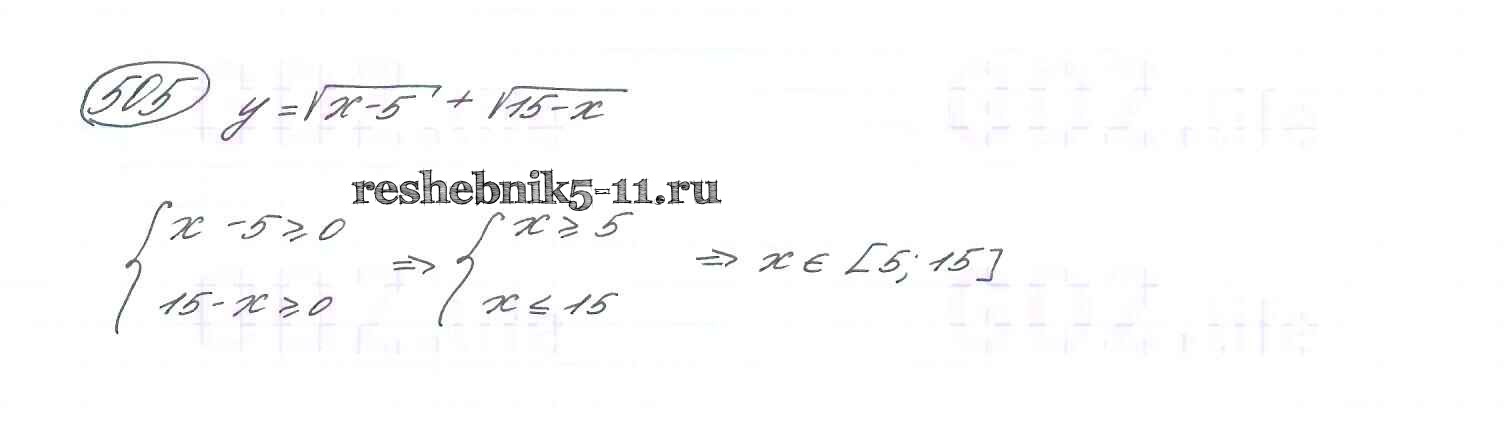 505 y = √(x-5) + √(15-x)
reshebnik5-11.ru
{ x - 5 ≥ 0 ⇒ { x ≥ 5 ⇒ x ∈ [5; 15]
15 - x ≥ 0 x ≤ 15